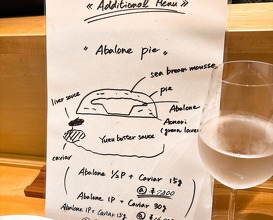 « Additional Menu »
" Abalone pie "
sea bream mousse
pie
liver sauce
Abalone
Aonori
(green laver)
Yuzu butter sauce
caviar
Abalone ½P + Caviar 15g
Abalone 1P + Caviar 30g
Abalone 1P + Caviar 15g